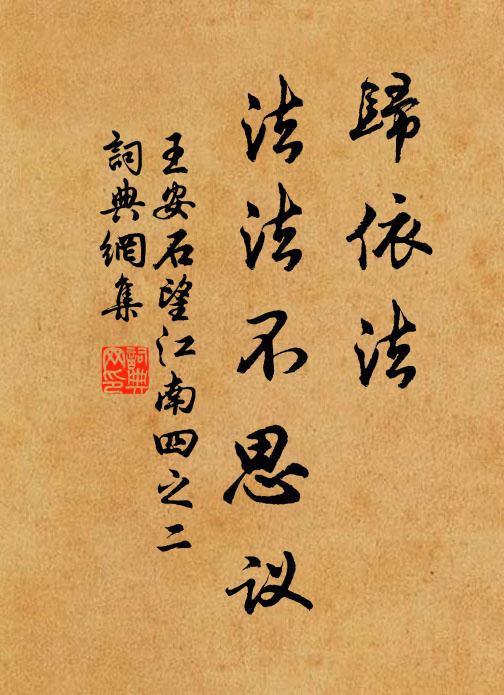 歸依法
法法不思议
王安石望江南四之二
詞典網集
詞典
网印